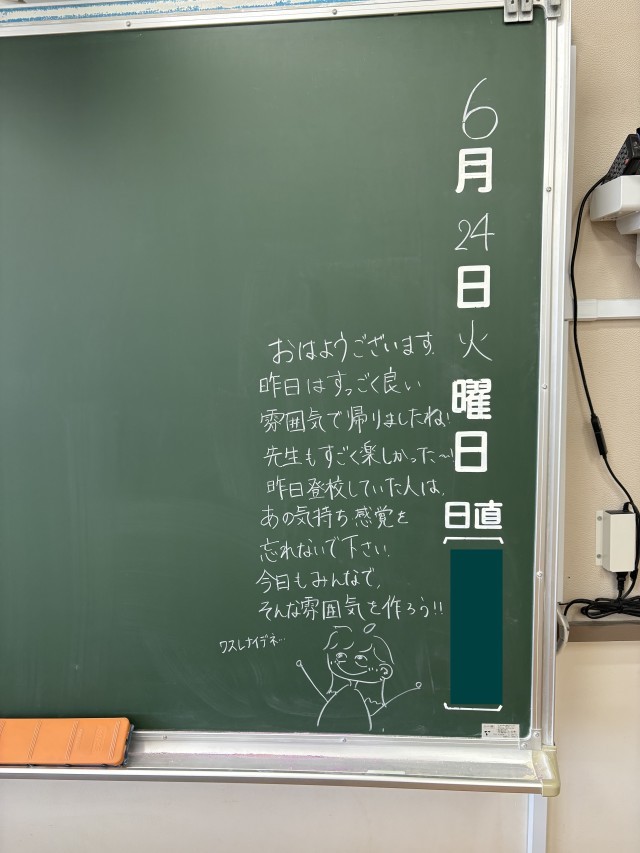 6月24日火曜日
日直
おはようございます.
昨日はすっごく良い
雰囲気で帰りましたね!
先生もすごく楽しかった〜!
昨日登校していた人は,
あの気持ち感覚を
忘れないで下さい.
今日もみんなで,
そんな雰囲気を作ろう!!
ワスレナイデネ…